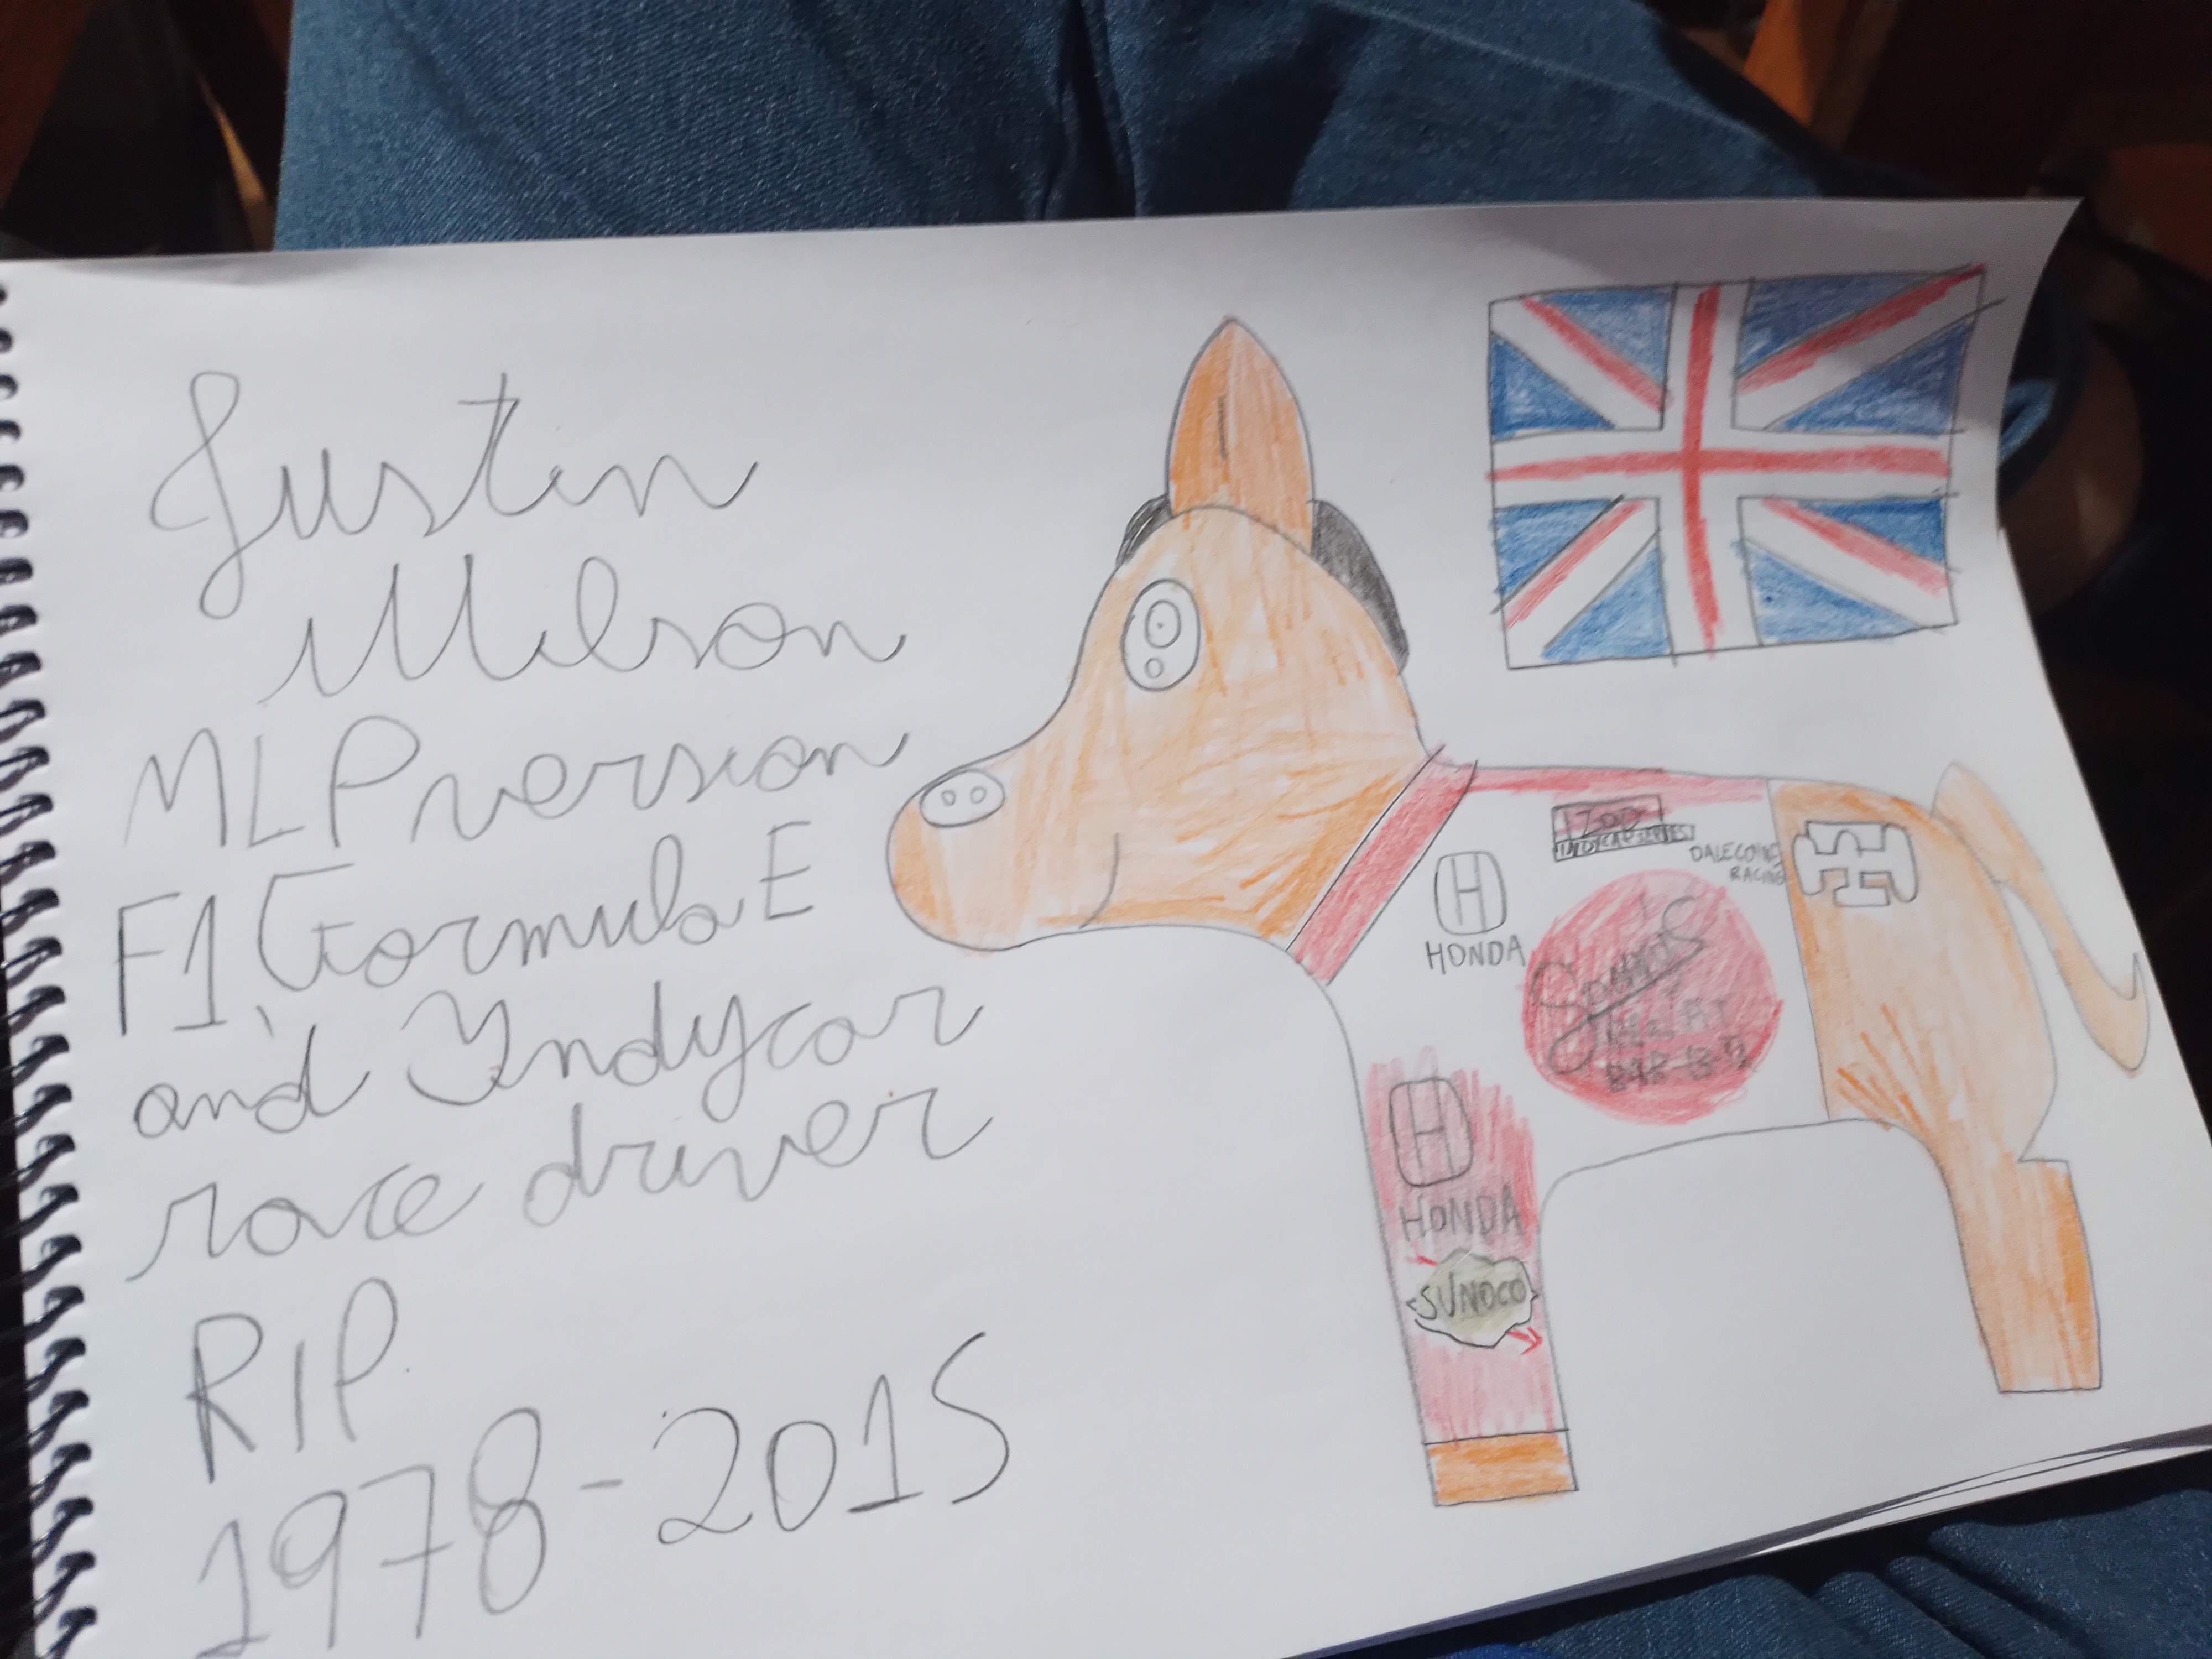 Justin
Wilson
MLP version
F1, Formula E
and Indycar
race driver
RIP
1978-2015
IZOD
INDYCAR SERIES
DALE COYNE
RACING
H
HONDA
BAR-B-Q
H
HONDA
SUNOCO